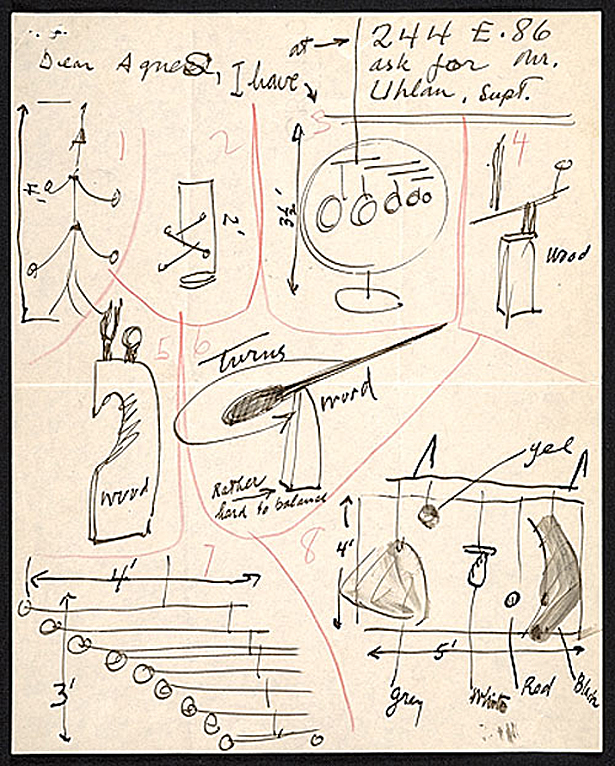 Dear Agnes, I have
at → 244 E. 86
ask for Mr.
Uhlan, Supt.
1
2
3
4
2'
3½'
wood
5
6
Turns
wood
wood
Rather
hard to balance
7
4'
3'
8
yel
4'
5'
grey
White
Red
Black